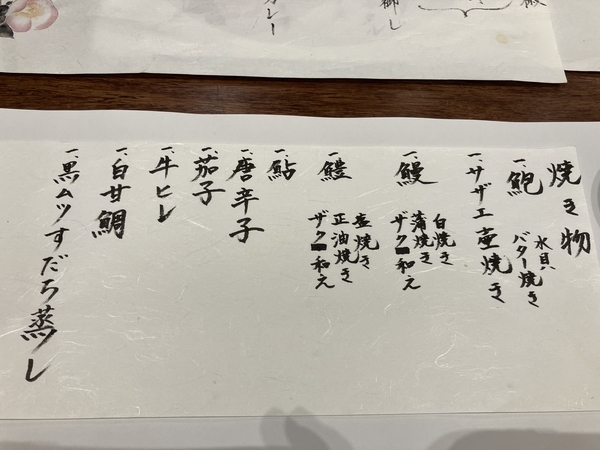 焼き物
一、鮑
水貝
バター焼き
一、サザエ壷焼き
一、鰻
白焼き
蒲焼き
ザク和え
一、鱧
塩焼き
正油焼き
ザク和え
一、鮎
一、唐辛子
一、茄子
一、牛ヒレ
一、白甘鯛
一、黒ムツすだち蒸し
御し
カレー